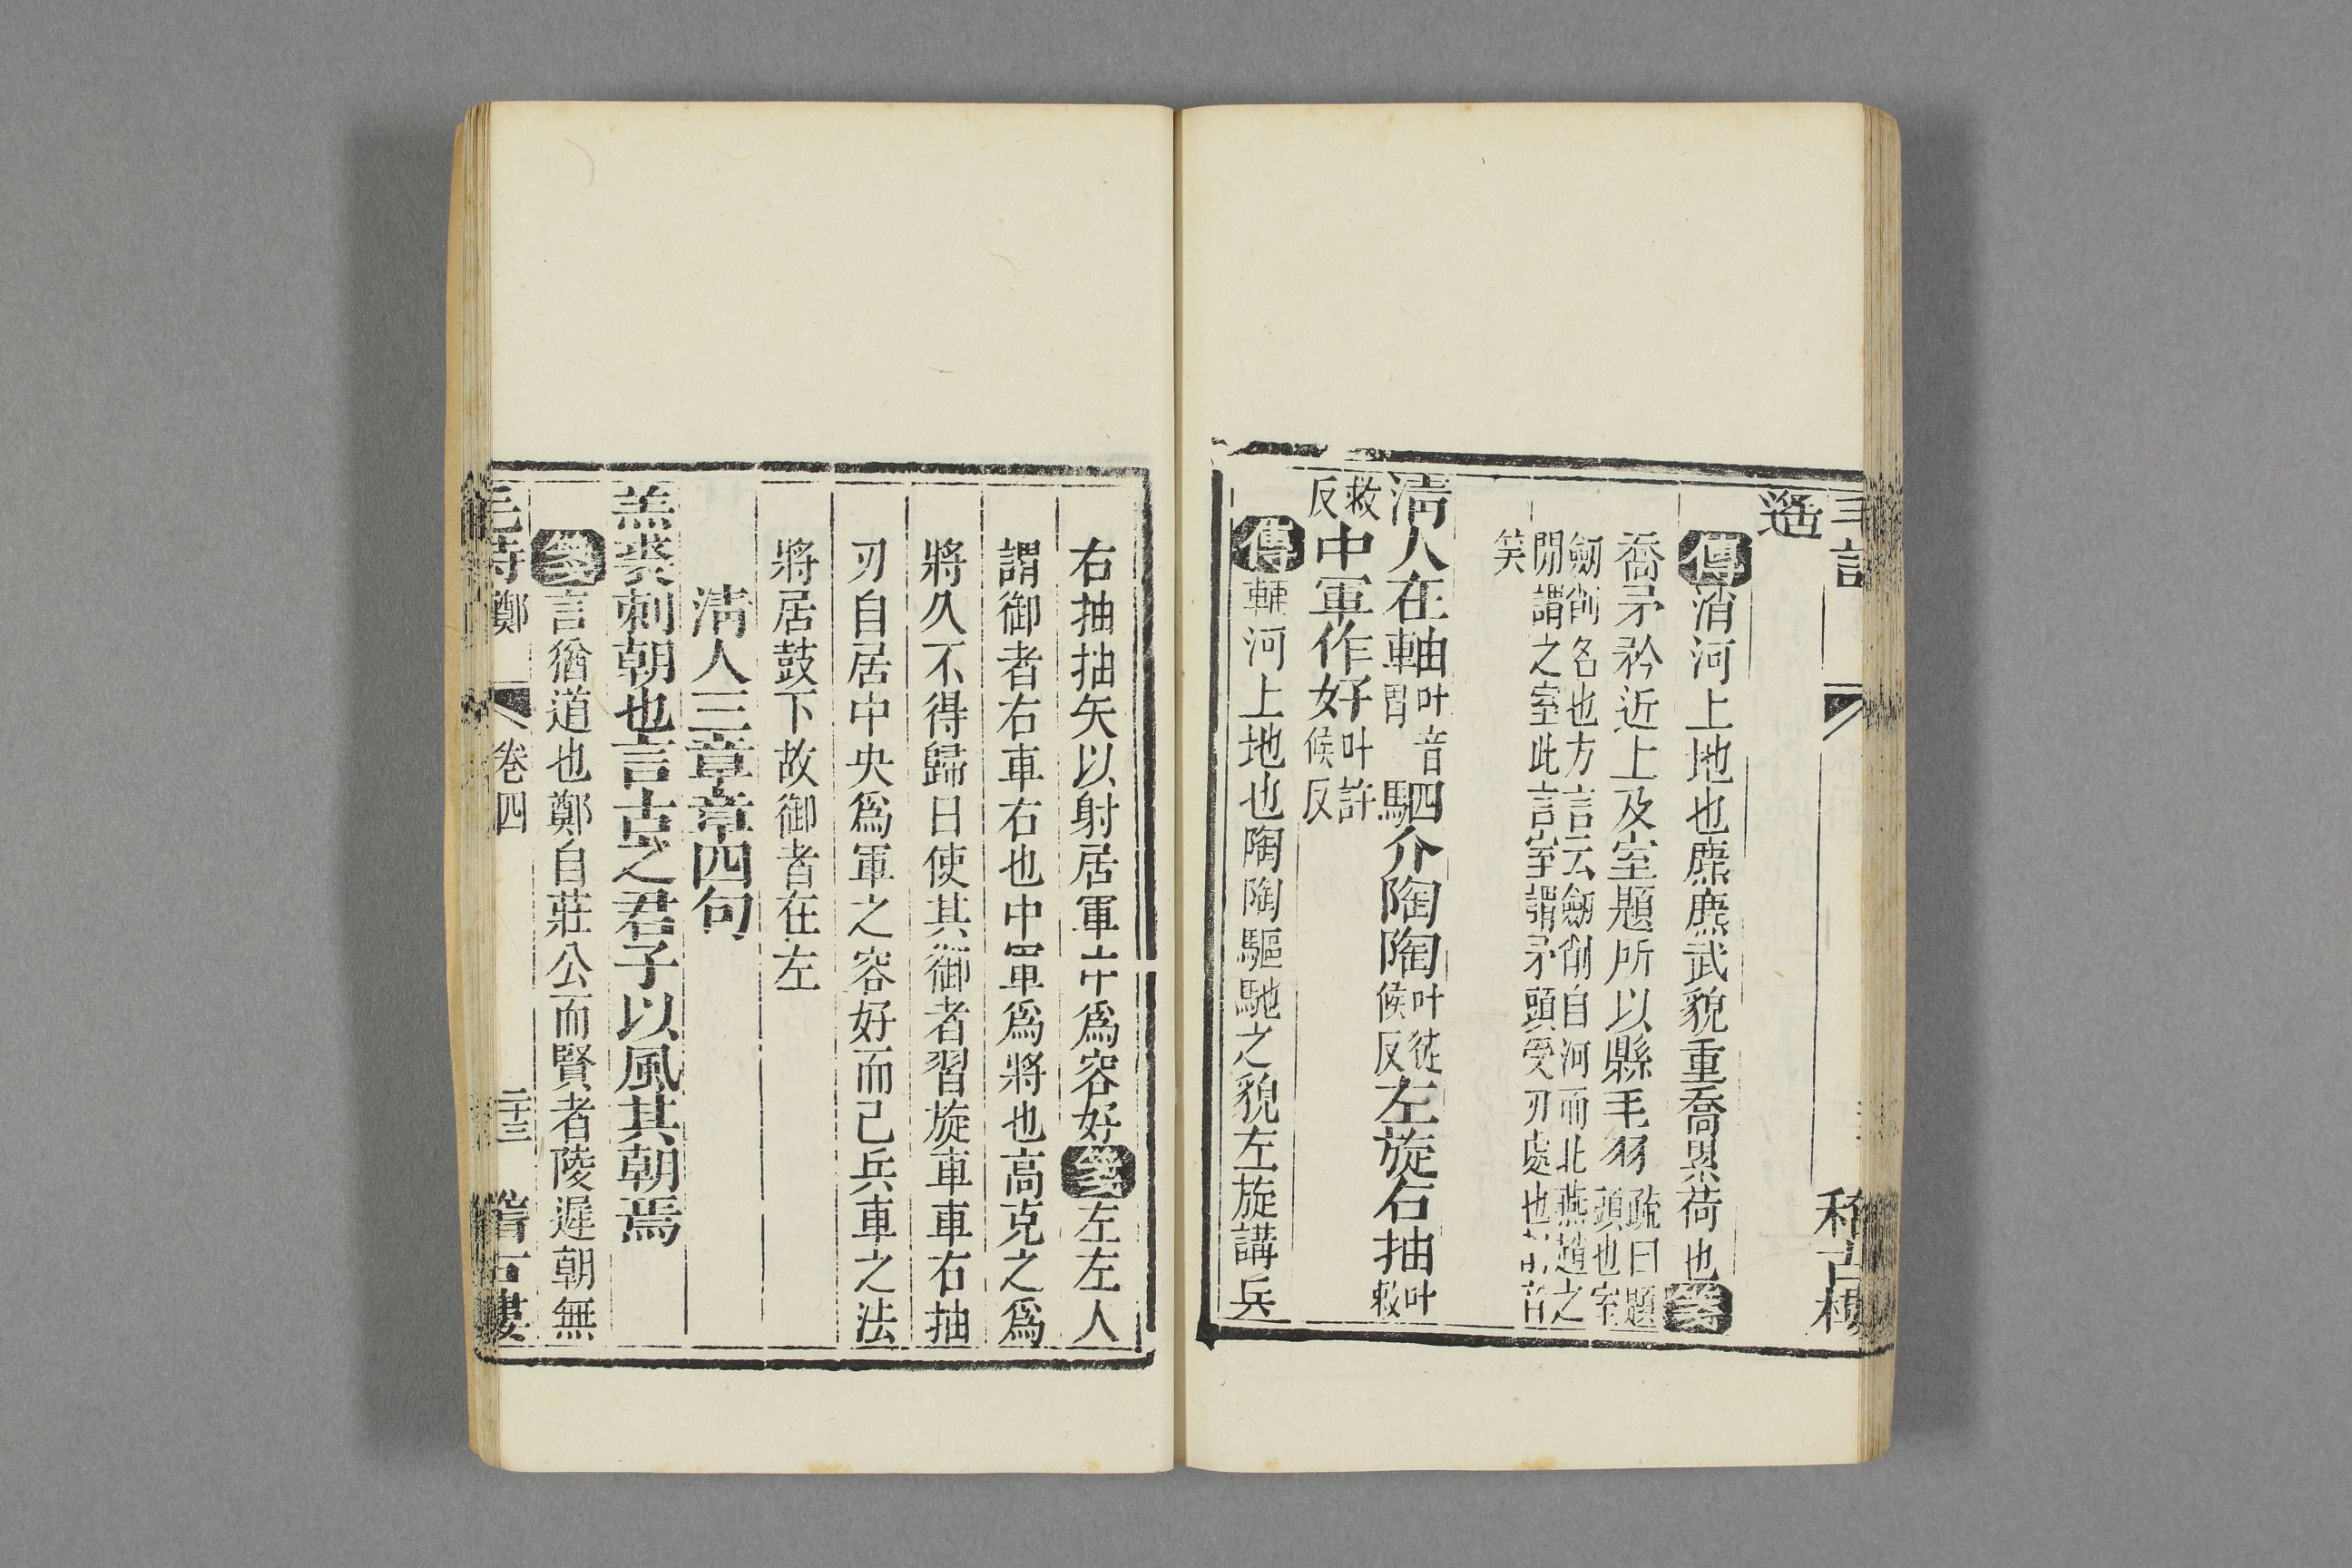 遥
傳消河上地也麃麃武貌重喬累荷也箋
喬矛矜近上及室題所以縣毛羽疏曰題頭也室
劒削名也方言云劒削自河而北燕趙之
閒謂之室此言室謂矛頭受刃處也削音
笑
清人在軸叶音胄駟介陶陶叶徒候反左旋右抽叶敕
救反中軍作好叶許候反
傳軸河上地也陶陶驅馳之貌左旋講兵
右抽抽矢以射居軍中爲容好箋左左人
謂御者右車右也中軍爲將也高克之爲
將久不得歸日使其御者習旋車車右抽
刃自居中央爲軍之容好而己兵車之法
將居鼓下故御者在左
清人三章章四句
羔裘刺朝也言古之君子以風其朝焉
箋言猶道也鄭自莊公而賢者陵遲朝無
毛詩鄭 卷四 二十三